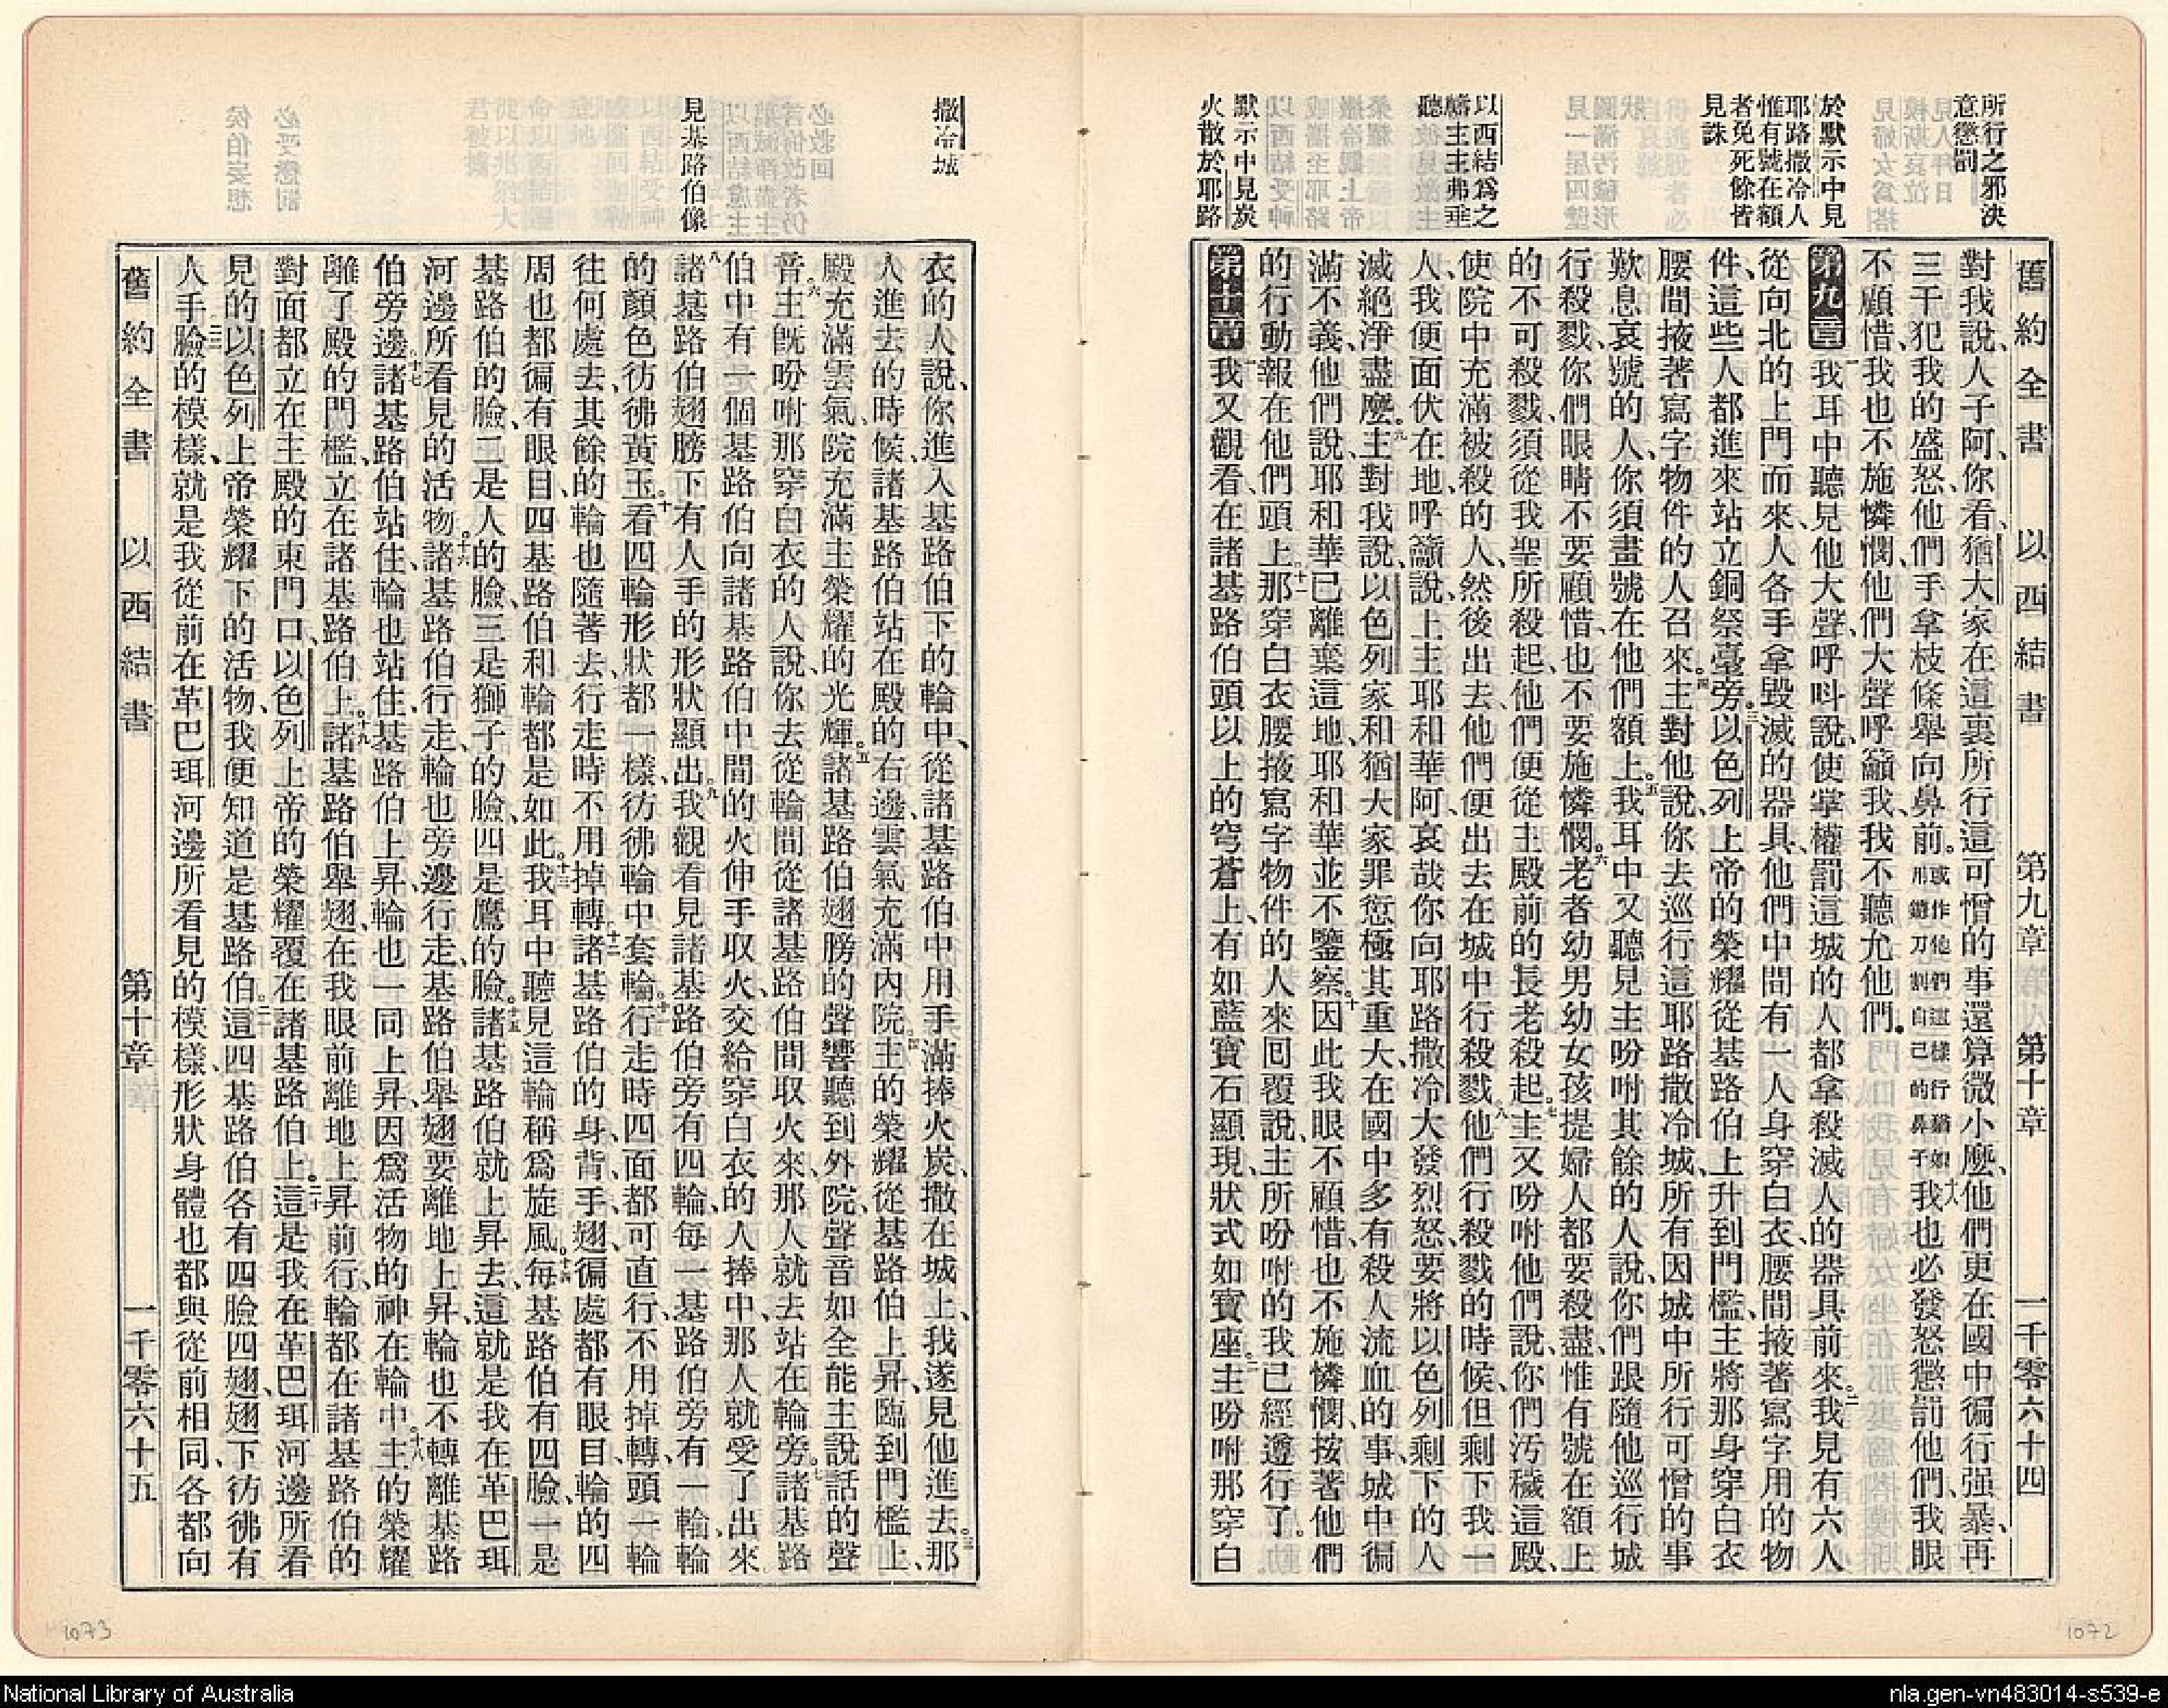 舊約全書 以西結書 第九章 第十章 一千零六十四
所行之邪決
意懲罰
於默示中見
耶路撒冷人
惟有號在額
者免死餘皆
見誅
以西結爲之
禱主主弗垂
聽
默示中見炭
火散於耶路
對我說、人子阿、你看、猶大家在這裏所行這可憎的事還算微小麽、他們更在國中徧行强暴、再
三干犯我的盛怒、他們手拿枝條舉向鼻前。或作他們這樣行猶如用鐮刀割自己的鼻子十八我也必發怒懲罰他們、我眼
不顧惜、我也不施憐憫、他們大聲呼籲我、我不聽允他們。
第九章 一我耳中聽見他大聲呼呌說、使掌權罰這城的人都拿殺滅人的器具前來。二我見有六人
從向北的上門而來、人各手拿毀滅的器具、他們中間有一人身穿白衣、腰間掖著寫字用的物
件、這些人都進來站立銅祭臺旁。三以色列上帝的榮耀從基路伯上升到門檻、主將那身穿白衣
腰間掖著寫字物件的人召來。四主對他說、你去巡行這耶路撒冷城、所有因城中所行可憎的事
歎息哀號的人、你須畫號在他們額上。五我耳中又聽見主吩咐其餘的人說、你們跟隨他巡行城
行殺戮、你們眼睛不要顧惜、也不要施憐憫。六老者幼男幼女孩提婦人都要殺盡、惟有號在額上
的不可殺戮、須從我聖所殺起、他們便從主殿前的長老殺起。七主又吩咐他們說、你們汚穢這殿、
使院中充滿被殺的人、然後出去、他們便出去在城中行殺戮。八他們行殺戮的時候、但剩下我一
人、我便面伏在地、呼籲說、上主耶和華阿、哀哉你向耶路撒冷大發烈怒、要將以色列剩下的人
滅絕淨盡麽。九主對我說、以色列家和猶大家罪愆極其重大、在國中多有殺人流血的事、城中徧
滿不義、他們說、耶和華已離棄這地、耶和華並不鑒察。十因此我眼不顧惜、也不施憐憫、按著他們
的行動報在他們頭上。十一那穿白衣腰掖寫字物件的人來囘覆說、主所吩咐的我已經遵行了。
第十章 一我又觀看、在諸基路伯頭以上的穹蒼上、有如藍寶石顯現、狀式如寶座。二主吩咐那穿白
1072
撒冷城
見基路伯像
衣的人說、你進入基路伯下的輪中、從諸基路伯中用手滿捧火炭、撒在城上、我遂見他進去。三那
人進去的時候、諸基路伯站在殿的右邊、雲氣充滿內院。四主的榮耀從基路伯上昇、臨到門檻上、
殿充滿雲氣、院充滿主榮耀的光輝。五諸基路伯翅膀的聲響聽到外院、聲音如全能主說話的聲
音。六主旣吩咐那穿白衣的人說、你去從輪間從諸基路伯間取火來、那人就去站在輪旁。七諸基路
伯中有一個基路伯向諸基路伯中間的火伸手取火、交給穿白衣的人捧中、那人就受了出來
八諸基路伯翅膀下有人手的形狀顯出。九我觀看見諸基路伯旁有四輪、每一基路伯旁有一輪、輪
的顏色彷彿黃玉。十看四輪形狀都一樣、彷彿輪中套輪。十一行走時四面都可直行、不用掉轉、頭一輪
往何處去、其餘的輪也隨著去、行走時不用掉轉。十二諸基路伯的身、背、手、翅、徧處都有眼目、輪的四
周也都徧有眼目、四基路伯和輪都是如此。十三我耳中聽見這輪稱爲旋風。十四每基路伯有四臉、一是
基路伯的臉、二是人的臉、三是獅子的臉、四是鷹的臉。十五諸基路伯就上昇去、這就是我在革巴珥
河邊所看見的活物。十六諸基路伯行走、輪也旁邊行走、基路伯舉翅要離地上昇、輪也不轉離基路
伯旁邊。十七諸基路伯站住、輪也站住、基路伯上昇、輪也一同上昇、因爲活物的神在輪中。十八主的榮耀
離了殿的門檻、立在諸基路伯上。十九諸基路伯舉翅、在我眼前離地上昇前行、輪都在諸基路伯的
對面、都立在主殿的東門口、以色列上帝的榮耀覆在諸基路伯上。二十這是我在革巴珥河邊所看
見的以色列上帝榮耀下的活物、我便知道是基路伯。二一這四基路伯各有四臉四翅、翅下彷彿有
人手。二二臉的模樣、就是我從前在革巴珥河邊所看見的模樣、形狀身體也都與從前相同、各都向
舊約全書 以西結書 第十章 一千零六十五
1073
National Library of Australia
nla.gen-vn483014-s539-e